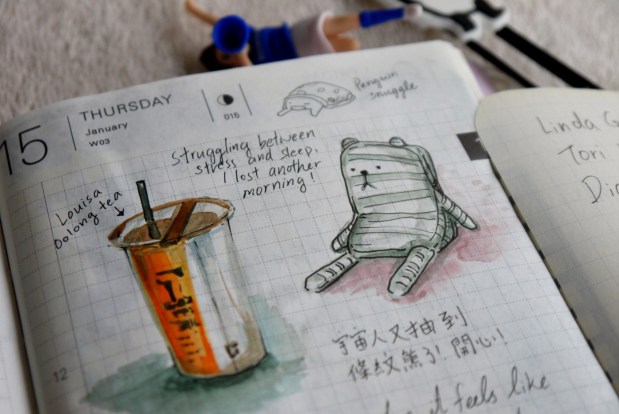 15
THURSDAY
January
W03
015
Penguin
snuggle
Struggling between
stress and sleep.
I lost another
morning!
Louisa
Oolong tea
12
宇宙人又抽到
條紋熊了!開心!
it feels like
Linda G
Tori